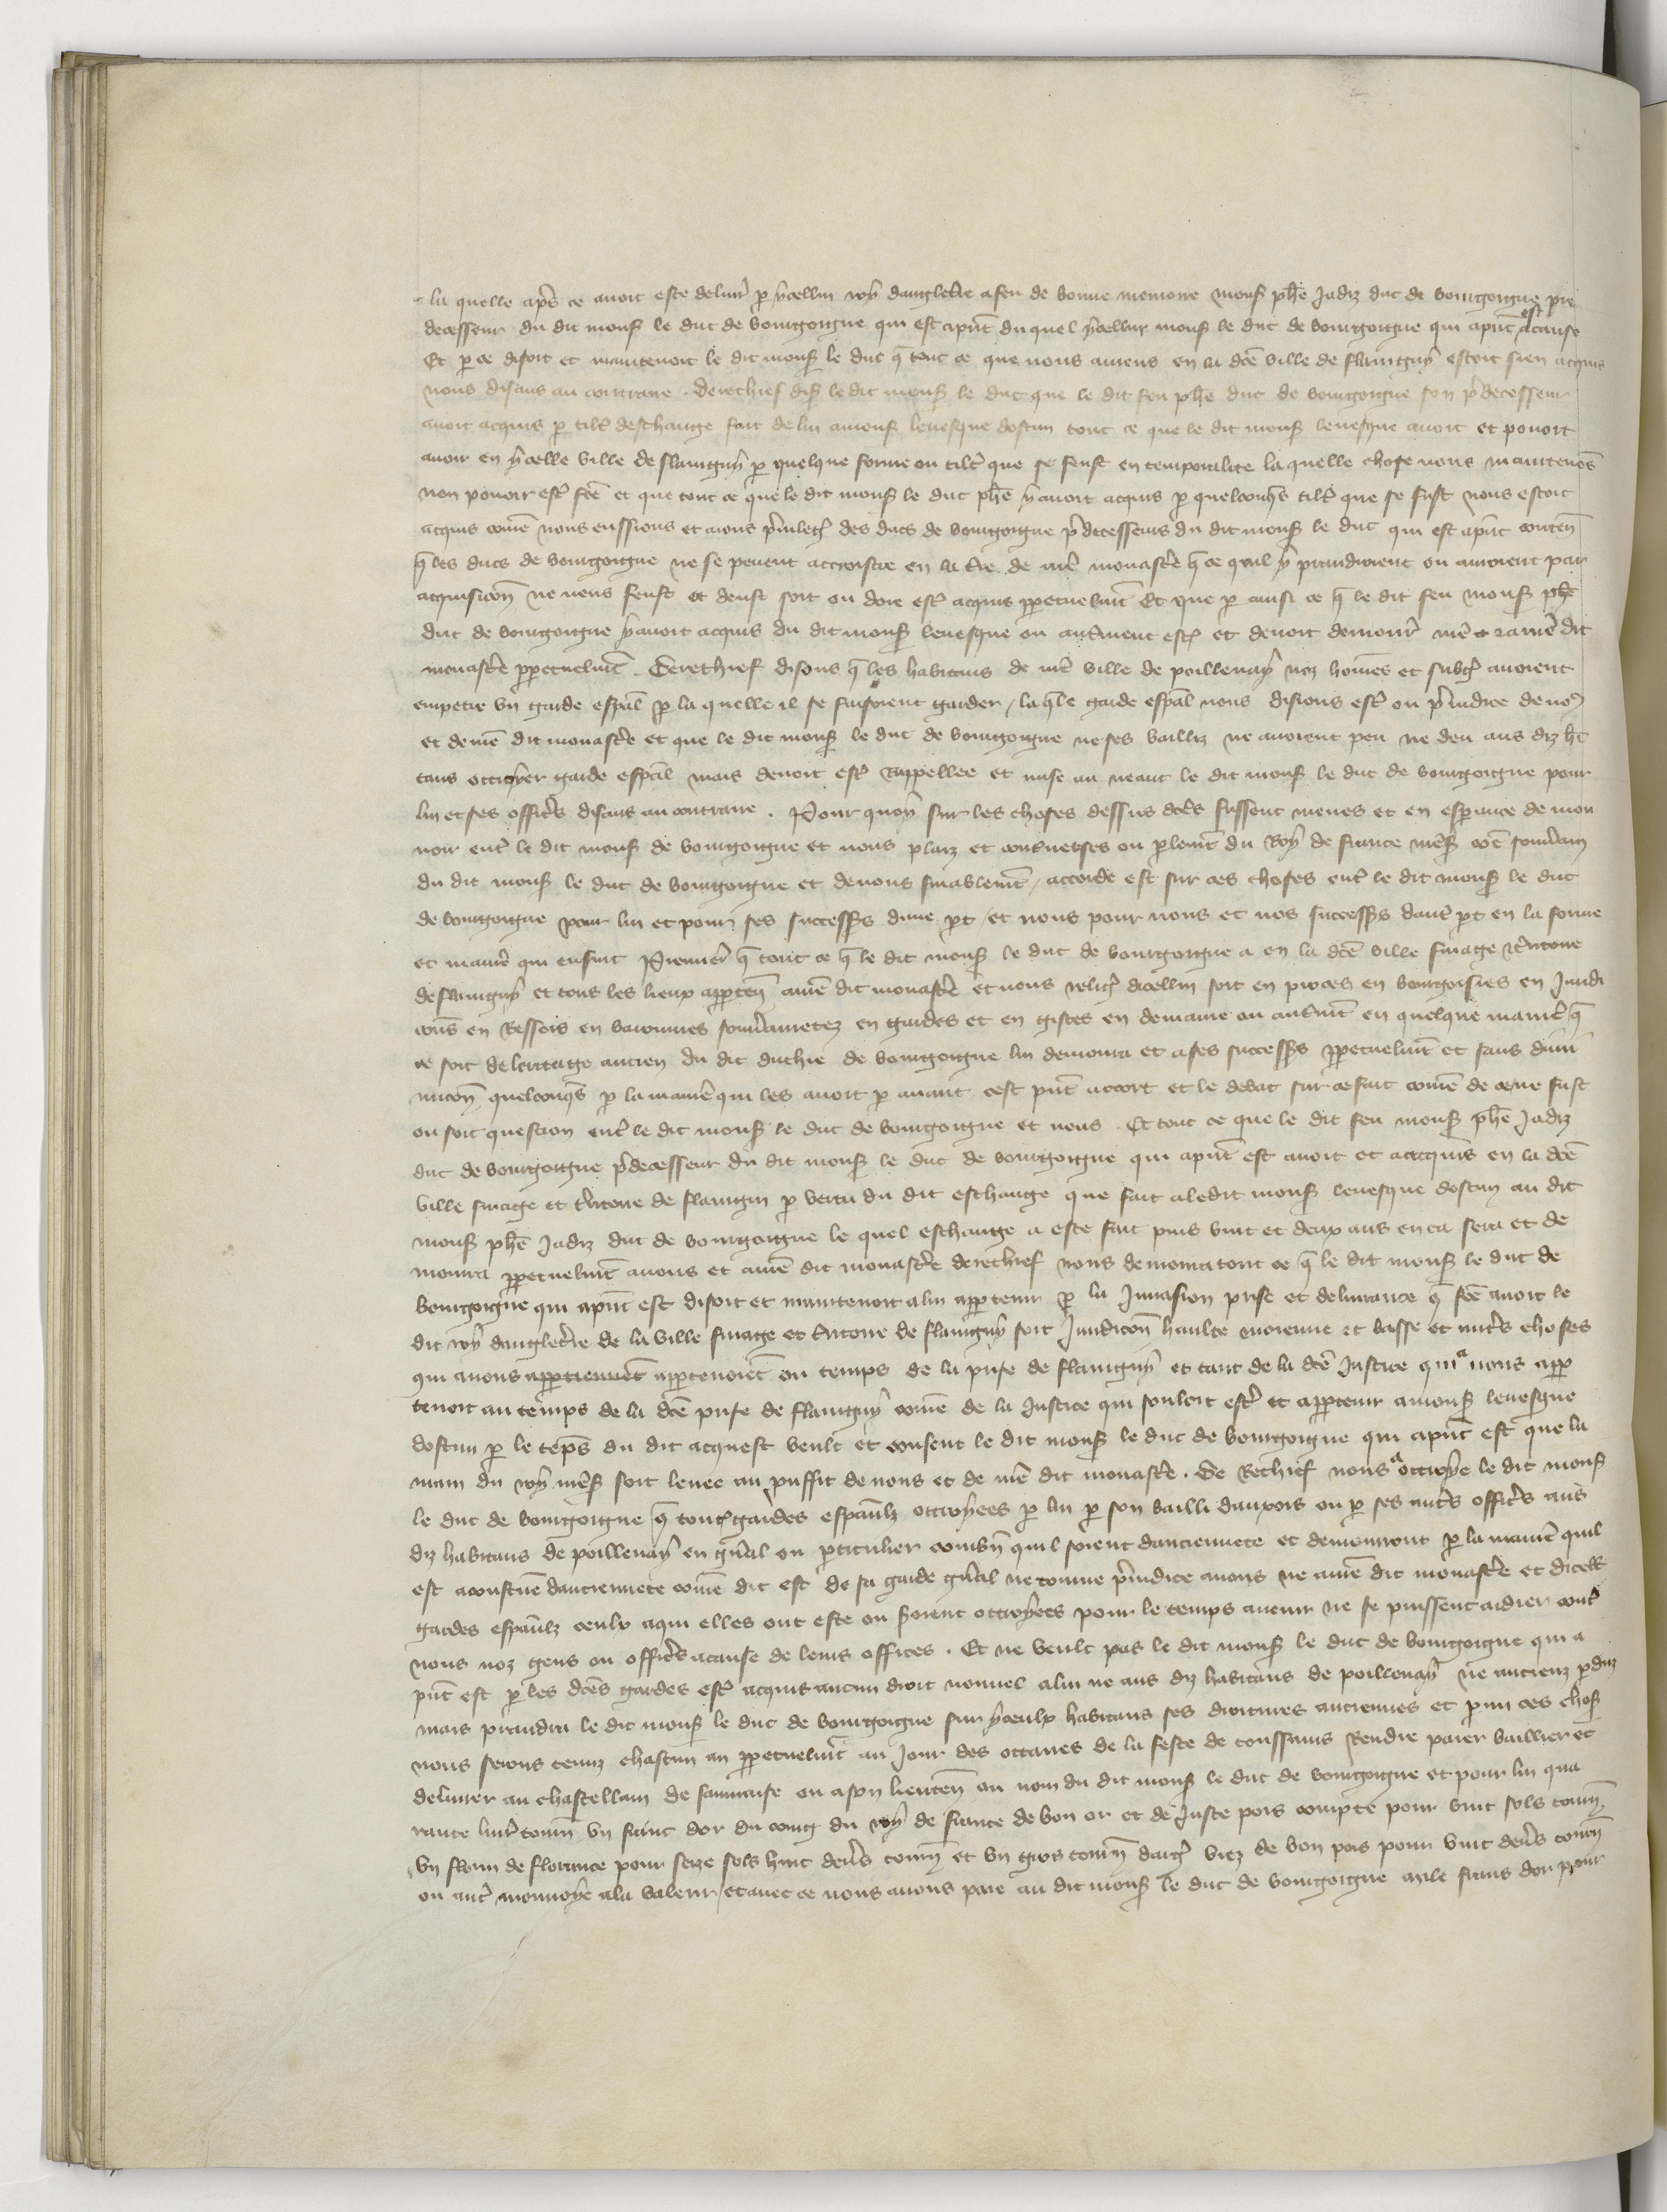 la quelle apres ce avoit este delivr par ycellui roy dangleterre a feu de bonne memoire mons phe jadiz duc de bourgoigne pre
decesseur du dit mons le duc de bourgoigne qui est apnt du quel ycellui mons le duc de bourgoigne qui apnt est a cause
Et p ce disoit et maintenoit le dit mons le duc q tout ce que nous aviens en la dce ville de flavigny estoit sien acquis
nous disans au contraire . Derechief dis le dit mons le duc que le dit feu phe duc de bourgoigne son pdecesseur
avoit acquis p titre deschange fait de lui a mons levesque dostun tout ce que le dit mons levesque avoit et povoit
avoir en ycelle ville de flavigny p quelque forme ou titre que se feust en temporalite la quelle chose nous maintenos
non povoir estre fce et que tout ce que le dit mons le duc phe y avoit acquis p quelconqs titre que se fust nous estoit
acquis come nous eussions et aions pvileg des ducs de bourgoigne pdecesseurs du dit mons le duc qui est apnt conten
q les ducs de bourgoigne ne se pevent accroistre en la tre de nre monastere q ce quil y prandroient ou auroient par
acquisicon ne nous feust et deust soit ou doie estre acquis ppetuelmt Et que p ainsi ce q le dit feu mons phe
duc de bourgoigne y avoit acquis du dit mons levesque ou autrement est et devoit demour nre et a nre dit
monastere ppetuelmt . Derechief disons q les habitans de nre ville de poillenay noz homes et subg avoient
empetre un garde espal p la quelle il se faisoient garder / la qle garde espal nous disions estre ou pjudice de nos
et de nre dit monastere et que le dit mons le duc de bourgoigne ne ses bailliz ne avoient peu ne deu aus diz hi
tans ottroyer garde espal mais devoit estre rappellee et mise au neant le dit mons le duc de bourgoigne pour
lui et ses officrs disans au contraire . Pour quoy sur les choses dessus dces fussent meues et en esperance de mou
voir entre le dit mons de bourgoigne et nous plaiz et controverses ou plemt du Roy de france nres come souverain
du dit mons le duc de bourgoigne et de nous finablemt / accorde est sur ces choses entre le dit mons le duc
de bourgoigne pour lui et pour ses successrs dune pt / et nous pour nous et nos successrs dautre pt en la forme
et maniere qui ensuit Premier q tout ce q le dit mons le duc de bourgoigne a en la dce ville finage territoire
de flavigny et tous les lieux apptens a nre dit monastere et nous relig dicellui soit en proces en bourgoisies en juridi
cons en Ressors en baronnies souverainetez en gardes et en gistes en demaine ou autremt en quelque maniere q
ce soit de leritage ancien du dit duchie de bourgoigne lui demoura et a ses successrs ppetuelmt et sans dimi
nucon quelconqs p la maniere qui les avoit p avant cest pnt accort et le debat sur ce fait come de ce ne fust
ou soit question entre le dit mons le duc de bourgoigne et nous . Et tout ce que le dit feu mons phe jadiz
duc de bourgoigne pdecesseur du dit mons le duc de bourgoigne qui apnt est avoit et acquis en la dce
ville finage et territoire de flavigny p vertu du dit eschange que fait a le dit mons levesque dostun au dit
mons phe jadiz duc de bourgoigne le quel eschange a este fait puis vint et deux ans en ca sera et de
moura ppetuelmt a nous et a nre dit monastere derechief nous demoura tout ce q le dit mons le duc de
bourgoigne qui apnt est disoit et maintenoit a lui apptenir p la invasion prise et delivrance q fce avoit le
dit roy dangleterre de la ville finage et territoire de flavigny soit juridicon haulte moienne et basse et autres choses
qui a nous appartiennent appartenoient ou temps de la prise de flavigny et tant de la dce justice qui a nous app
tenoit au temps de la dce prise de flavigny come de la justice qui souloit estre et apptenir a mons levesque
dostun p le teps du dit acquest veult et consent le dit mons le duc de bourgoigne qui apnt est que la
main du roy nres soit levee au pruffit de nous et de nre dit monastere . De Rechief nous a ottroye le dit mons
le duc de bourgoigne q toutes gardes espaulx ottroyees p lui p son bailli dauxois ou p ses autres officrs aus
diz habitans de poillenay en gnal ou pticulier combn quil soient danciennete et demourront p la maniere quil
est acoustume danciennete come dit est de sa garde gnal ne tourne pjudice a nous ne a nre dit monastere et dicell
gardes espaulx ceulx a qui elles ont este ou soient ottroyees pour le temps avenir ne se puissent aidier contre
nous noz gens ou officrs a cause de leurs offices . Et ne veult pas le dit mons le duc de bourgoigne qui a
pnt est p les dces gardes estre acquis aucun droit nouvel a lui ne aus diz habitans de poillenay ne anciens pduz
mais prandra le dit mons le duc de bourgoigne sur yceulx habitans ses droitures anciennes et pmi ces chos
nous serons tenuz chascun an ppetuelmt au jour des octaves de la feste de toussains Rendre paier baillier et
delivrer au chastellain de saumaise ou a son lieuten ou nom du dit mons le duc de bourgoigne et pour lui qua
rante livr tourn un franc dor du coing du roy de france de bon or et de juste pois compte pour vint sols tourn
un florin de florance pour seze sols huit deners tourn et un gros tourn darg viez de bon pois pour vint deners tourn
ou autre monnoye a la valeur / et avec ce nous avons paie au dit mons le duc de bourgoigne mile frans dor pour